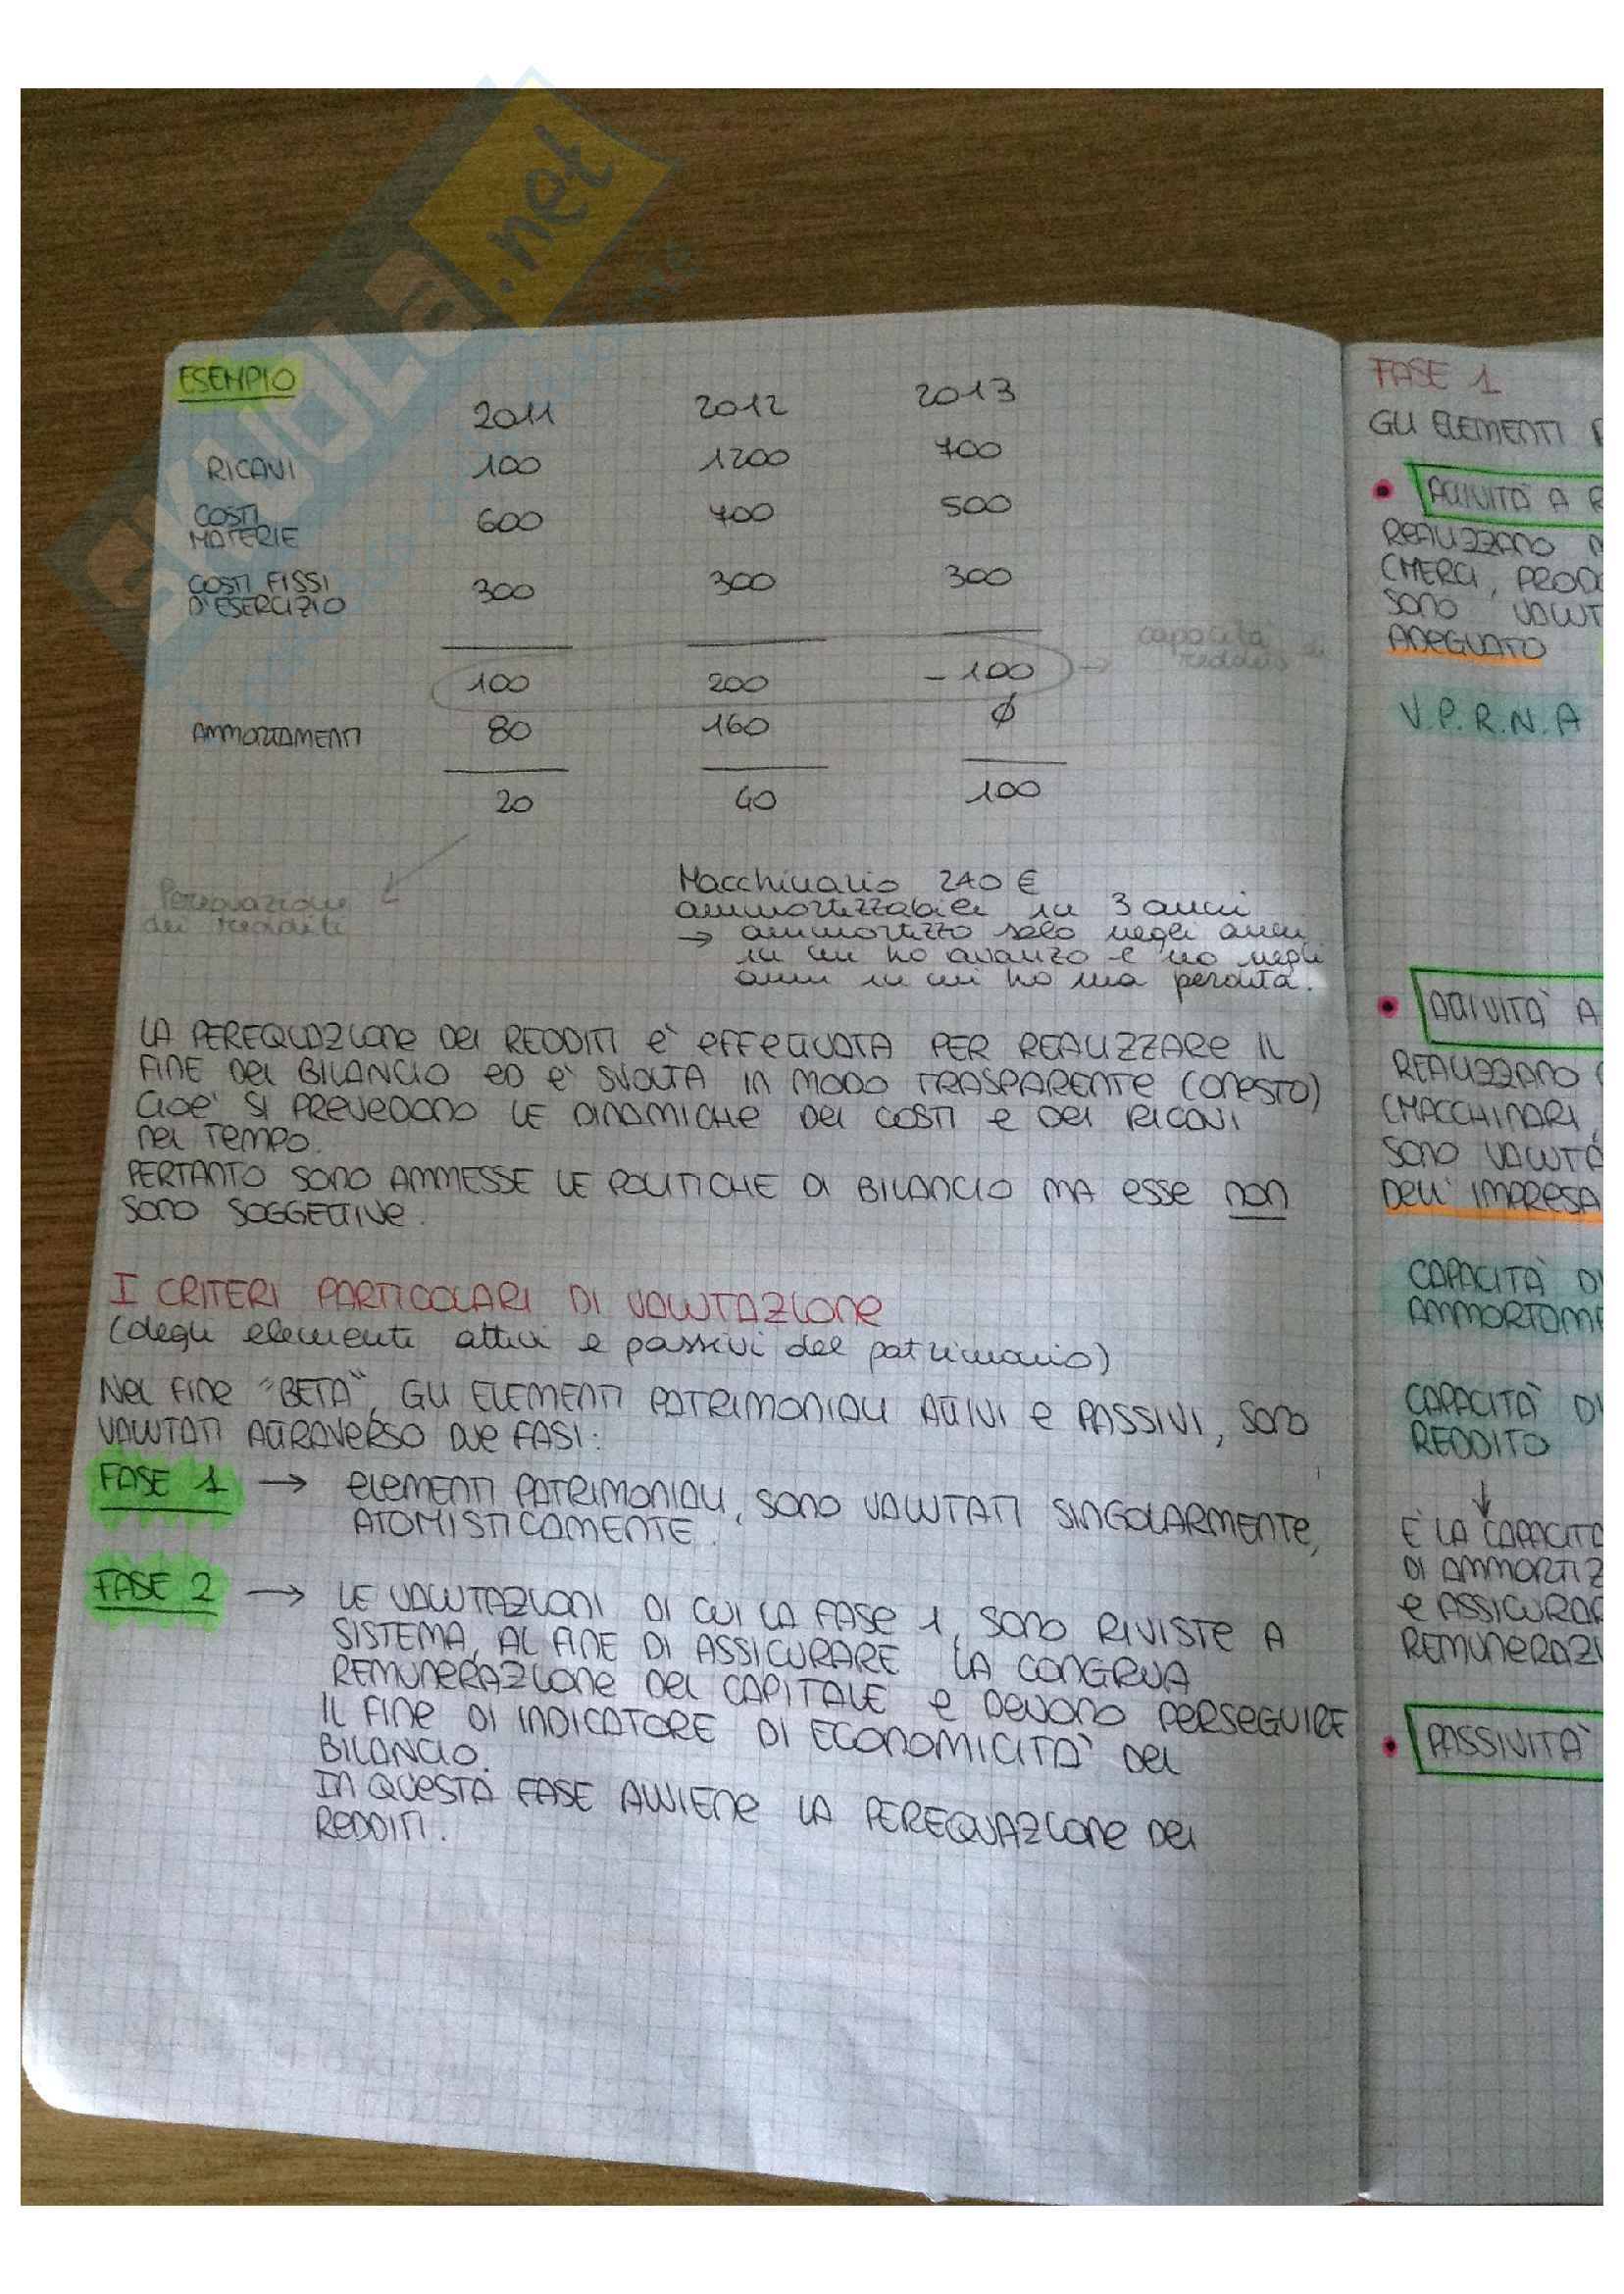 ESEMPIO
2011 2012 2013
RICAVI 100 1200 700
COSTI MATERIE 600 700 500
COSTI FISSI D'ESERCIZIO 300 300 300
100 200 -100 → capacità di reddito
AMMORTAMENTI 80 160 Ø
20 40 100
Perequazione
dei redditi
Macchinario 240 €
ammortizzabile in 3 anni
→ ammortizzo solo negli anni
in cui ho avanzo e no negli
anni in cui ho una perdita.
LA PEREQUAZIONE DEI REDDITI E' EFFETTUATA PER REALIZZARE IL
FINE DEL BILANCIO ED E' SVOLTA IN MODO TRASPARENTE (ONESTO)
CIOE' SI PREVEDONO LE DINAMICHE DEI COSTI E DEI RICAVI
NEL TEMPO.
PERTANTO SONO AMMESSE LE POLITICHE DI BILANCIO MA ESSE NON
SONO SOGGETTIVE.
I CRITERI PARTICOLARI DI VALUTAZIONE
(degli elementi attivi e passivi del patrimonio)
NEL FINE "BETA", GLI ELEMENTI PATRIMONIALI ATTIVI E PASSIVI, SONO
VALUTATI ATTRAVERSO DUE FASI:
FASE 1 → ELEMENTI PATRIMONIALI, SONO VALUTATI SINGOLARMENTE,
ATOMISTICAMENTE.
FASE 2 → LE VALUTAZIONI DI CUI LA FASE 1, SONO RIVISTE A
SISTEMA, AL FINE DI ASSICURARE LA CONGRUA
REMUNERAZIONE DEL CAPITALE E DEVONO PERSEGUIRE
IL FINE DI INDICATORE DI ECONOMICITA' DEL
BILANCIO.
IN QUESTA FASE AVVIENE LA PEREQUAZIONE DEI
REDDITI.
FASE 1
GLI ELEMENTI
• ATTIVITA' A
REALIZZANO
(MERCI, PROD
SONO VALUT
ADEGUATO
V.P.R.N.A
• ATTIVITA' A
REALIZZANO
(MACCHINARI,
SONO VALUTA
DELL'IMPRESA
CAPACITA' DI
AMMORTAME
CAPACITA' DI
REDDITO
↓
E' LA CAPACITA
DI AMMORTIZ
E ASSICURAR
REMUNERAZI
• PASSIVITA'
SKUOLA.net